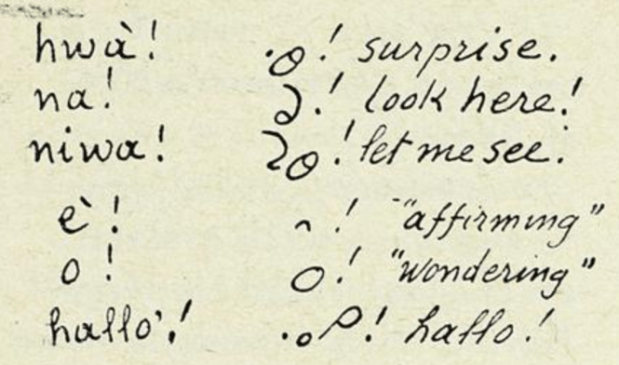 hwà! ! surprise.
na! ! look here!
niwa! ! let me see!
è! ! "affirming"
o! ! "wondering"
hallò! ! hallo!